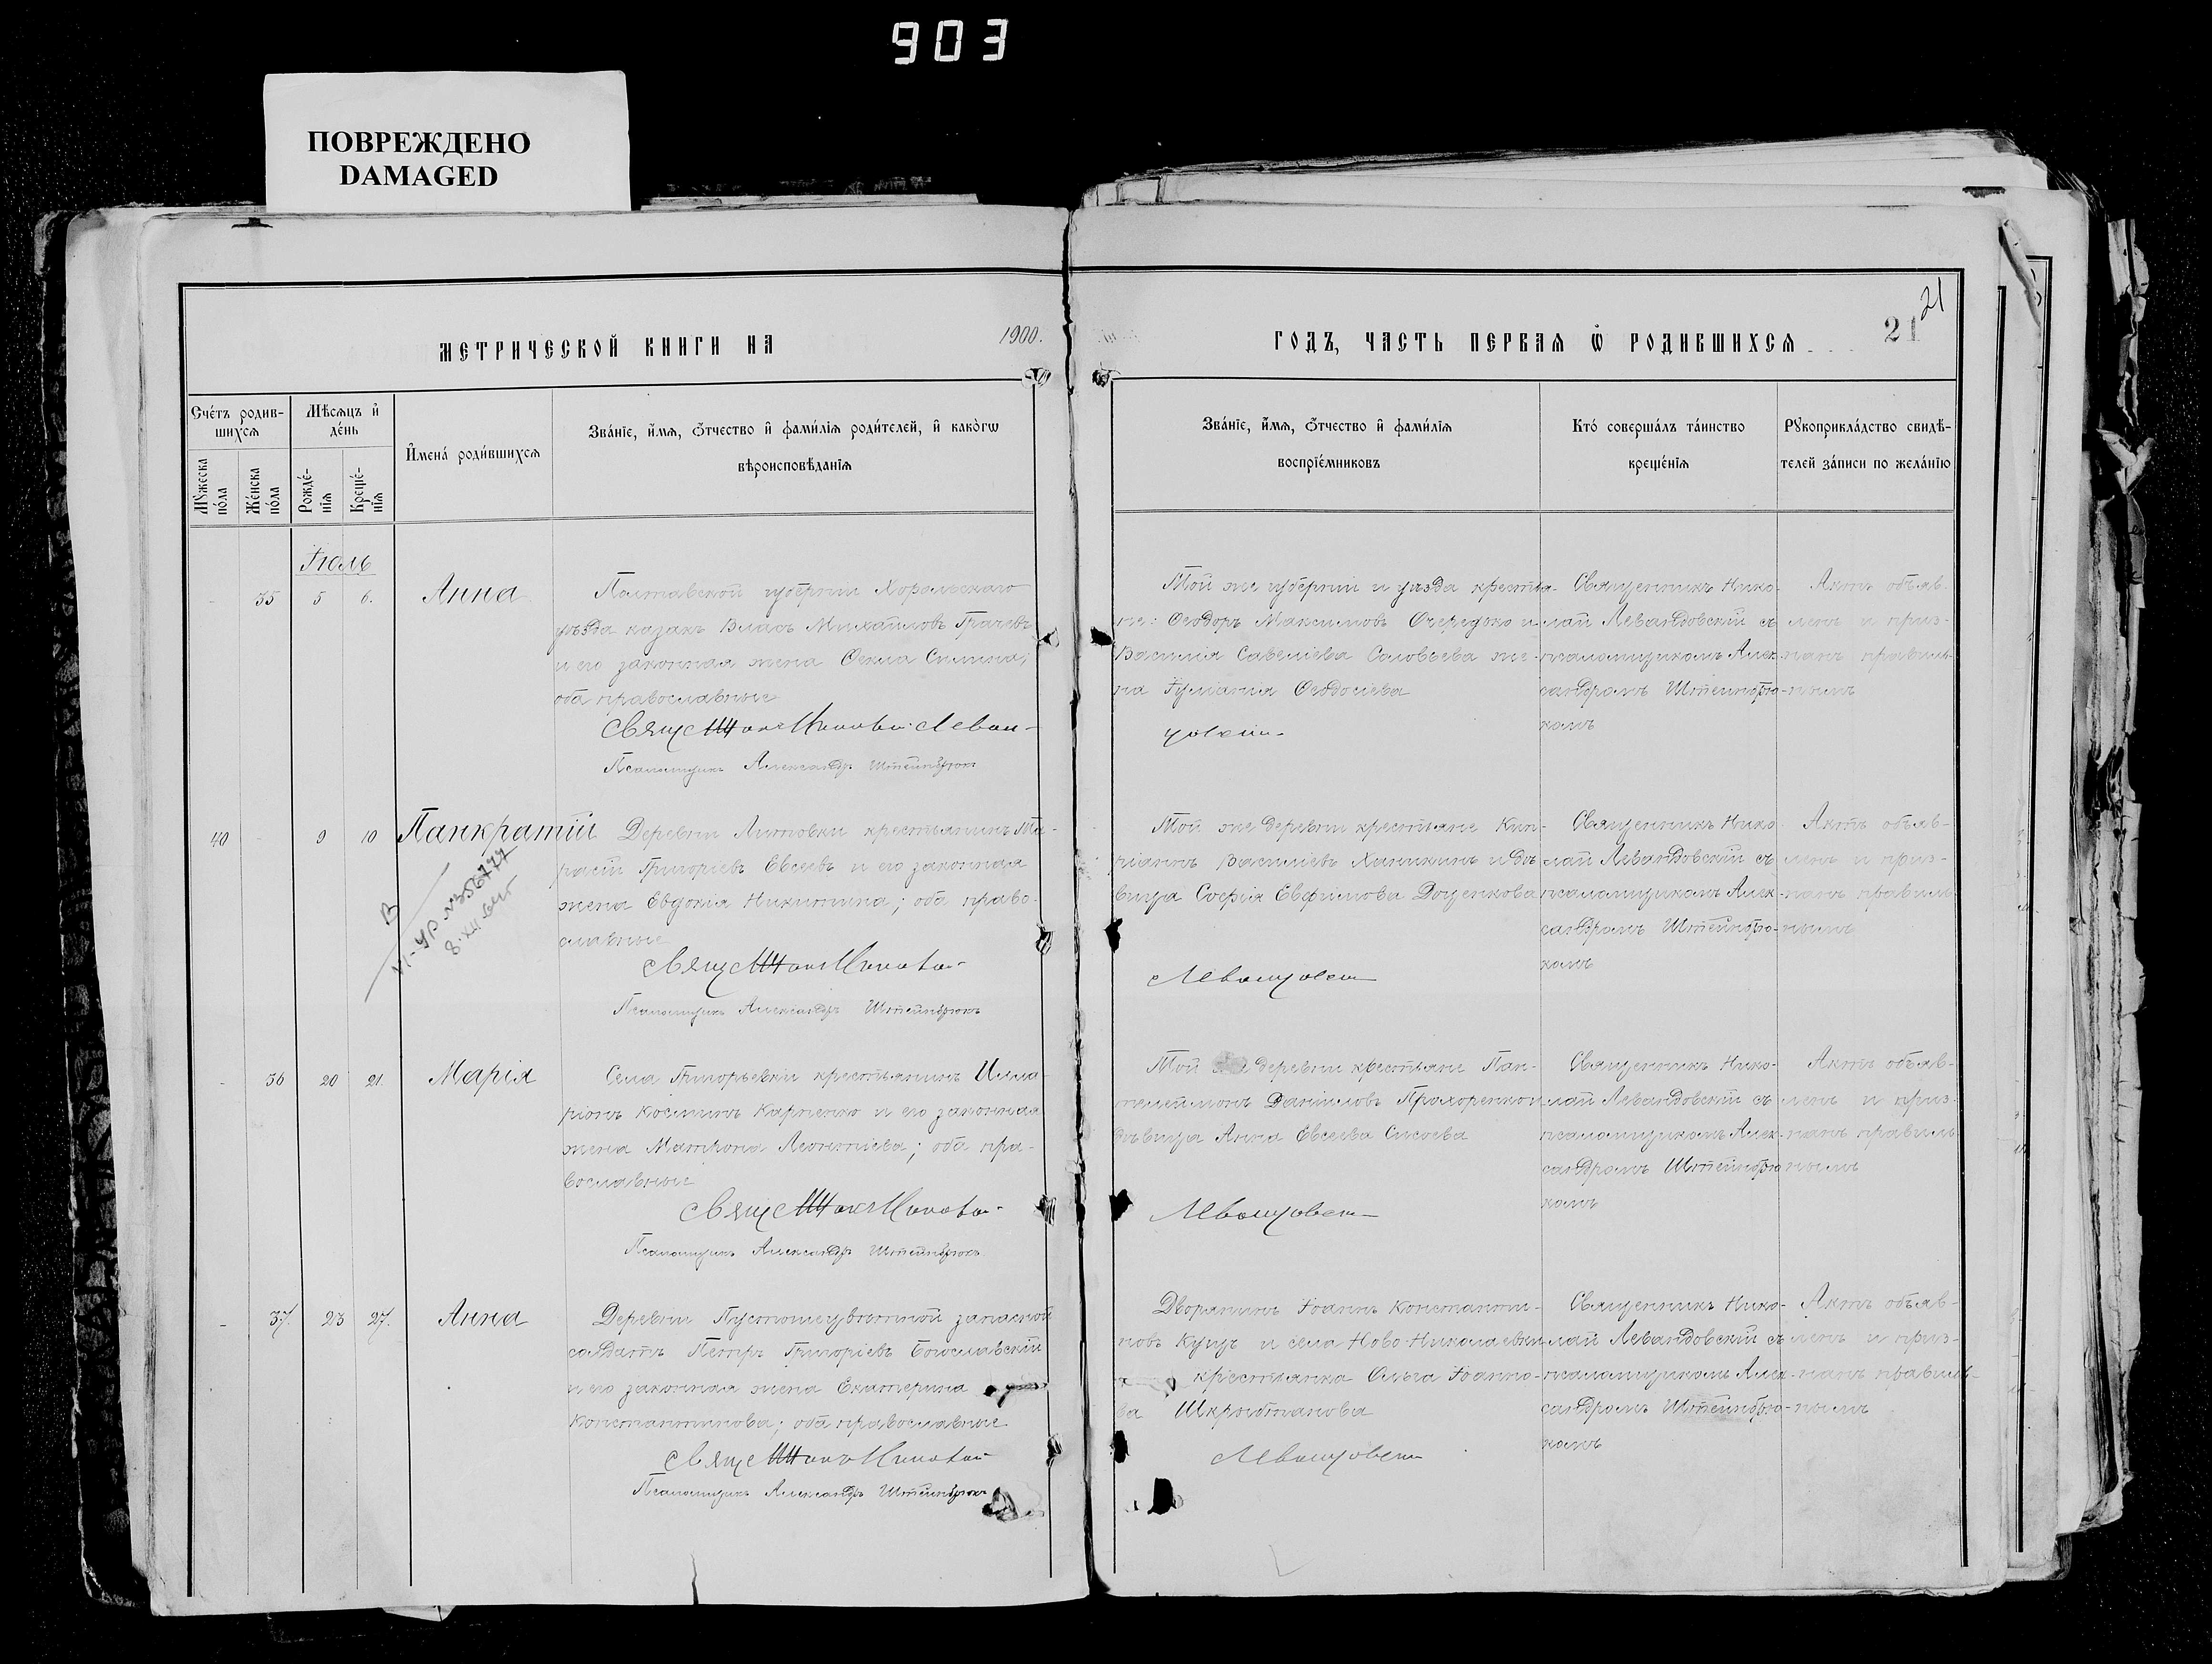 903
ПОВРЕЖДЕНО
DAMAGED
МЕТРИЧЕСКОЙ КНИГИ НА 1900.
ГОДЪ, ЧАСТЬ ПЕРВАЯ Ѡ РОДИВШИХСЯ
21
21
Сче́тъ родив-
шихсѧ
Мѣсѧцъ и҆
де́нь
Мꙋжеска
по́ла
Же́нска
по́ла
Рожде́-
нїѧ
Креще́-
нїѧ
И҆мена́ роди́вшихсѧ
Зва́нїе, и҆́мѧ, ѻ҆́тчество и҆ фами́лїѧ роди́телей, и҆ како́гѡ
вѣроисповѣ́данїѧ
Зва́нїе, и҆́мѧ, ѻ҆́тчество и҆ фами́лїѧ
воспрїе́мниковъ
Кто́ соверша́лъ та́инство
креще́нїѧ
Рꙋкоприкла́дство свидѣ́-
телей за́писи по жела́нїю
Іюль
- 35 5 6. Анна
Полтавской губерніи Хорольскаго
уѣзда казакъ Власъ Михайловъ Грачевъ
и его законная жена Ѳекла Силина;
оба православные
Священникъ Николай Леван-
Псаломщикъ Александръ Штейнбрюкъ
Той же губерніи и уѣзда крестья-
не: Ѳеодоръ Максимовъ Очередко и
Василія Савеліева Соловьева же-
на Іуліанія Ѳеодосіева
довскій
Священникъ Нико-
лай Левандовскій съ
псаломщикомъ Алек-
сандромъ Штейнбрю-
комъ
Актъ объяв-
ленъ и приз-
нанъ правиль-
нымъ
40 - 9 10 Панкратій
В
8.XII
Деревни Литовки крестьянинъ Та-
расій Григоріевъ Евсеевъ и его законная
жена Евдокія Никитина; оба право-
славные
Священникъ Николай
Псаломщикъ Александръ Штейнбрюкъ
Той же деревни крестьяне Кип-
ріанъ Василіевъ Ханикинъ и дѣ-
вица Софія Евфимова Доценкова
Левандовскій
Священникъ Нико-
лай Левандовскій съ
псаломщикомъ Алек-
сандромъ Штейнбрю-
комъ
Актъ объяв-
ленъ и приз-
нанъ правиль-
нымъ
- 36 20 21. Марія
Села Григорьевки крестьянинъ Илла-
ріонъ Косминъ Карпенко и его законная
жена Матрона Леонтіева; оба пра-
вославные
Священникъ Николай
Псаломщикъ Александръ Штейнбрюкъ
Той же деревни крестьяне Пан-
телеймонъ Даниловъ Прохоренко и
дѣвица Анна Евсеева Сисоева
Левандовскій
Священникъ Нико-
лай Левандовскій съ
псаломщикомъ Алек-
сандромъ Штейнбрю-
комъ
Актъ объяв-
ленъ и приз-
нанъ правиль-
нымъ
- 37. 23 27. Анна
Деревни запасной
солдатъ Петръ Григоріевъ Богославскій
и его законная жена Екатерина
Константинова; оба православные
Священникъ Николай
Псаломщикъ Александръ Штейнбрюкъ
Дворянинъ Іоаннъ Константи-
новъ Куцъ и села Ново-Николаевки
крестьянка Ольга Іоанно-
ва
Левандовскій
Священникъ Нико-
лай Левандовскій съ
псаломщикомъ Алек-
сандромъ Штейнбрю-
комъ
Актъ объяв-
ленъ и приз-
нанъ правиль-
нымъ